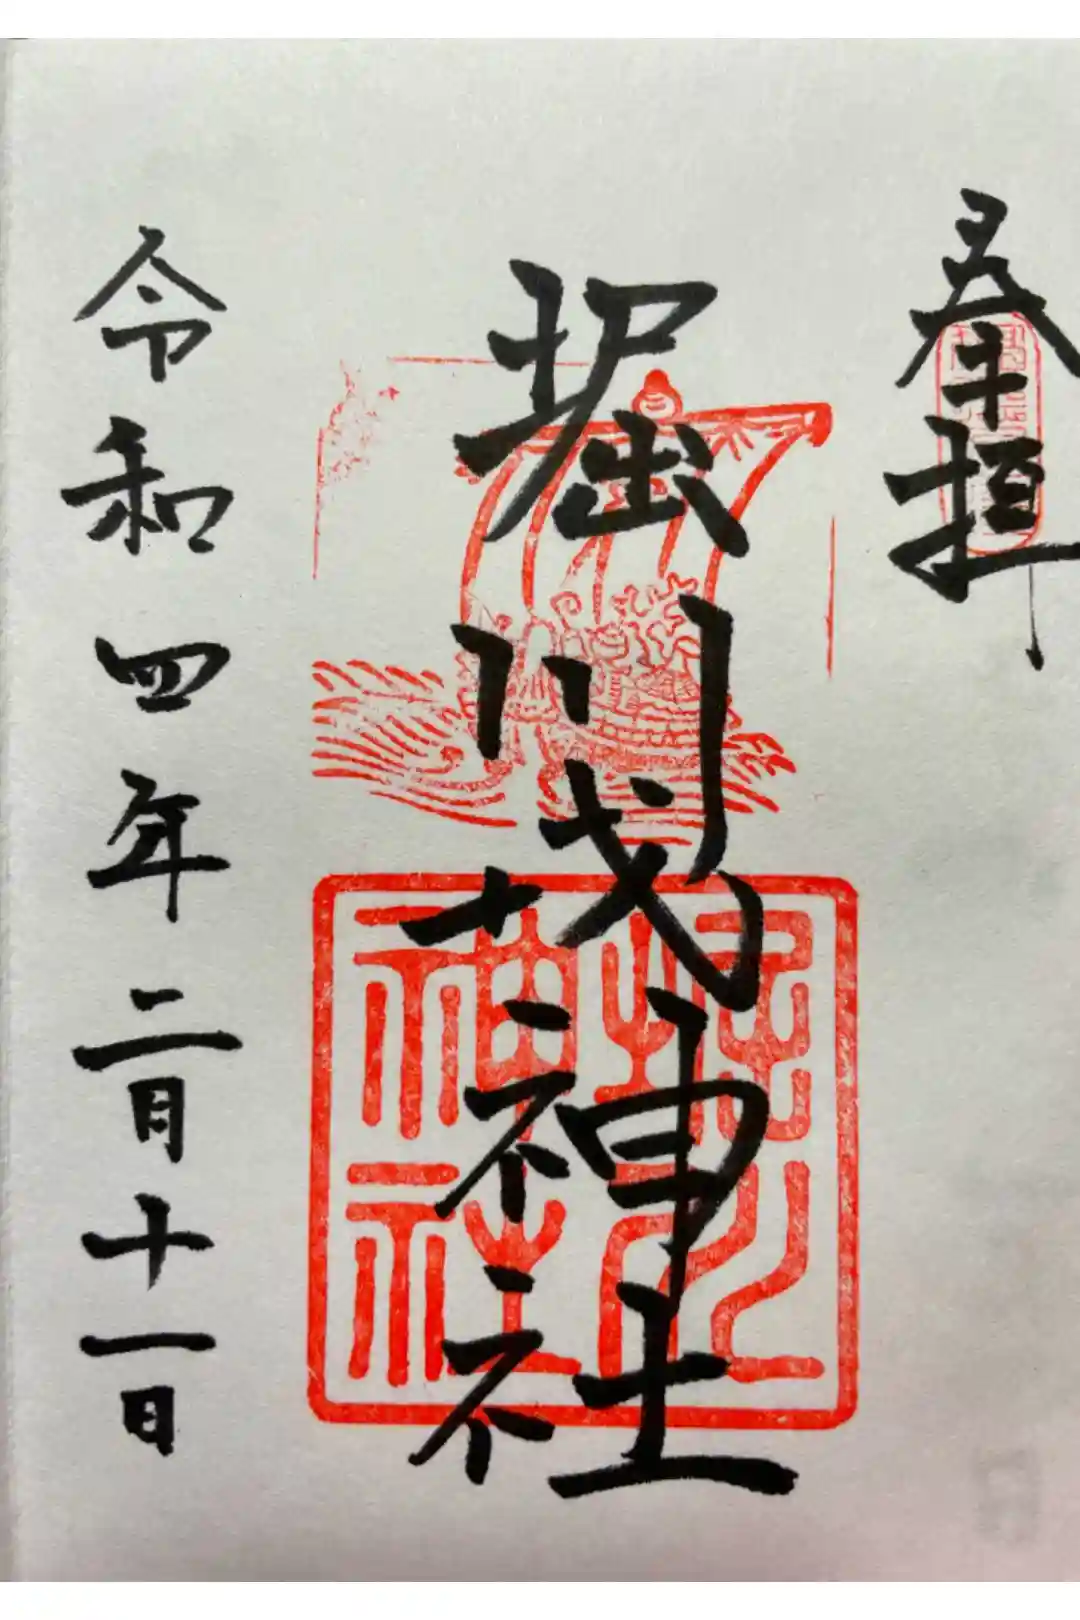 奉拝
堀川戎神社
堀川
神社
令和四年二月十一日